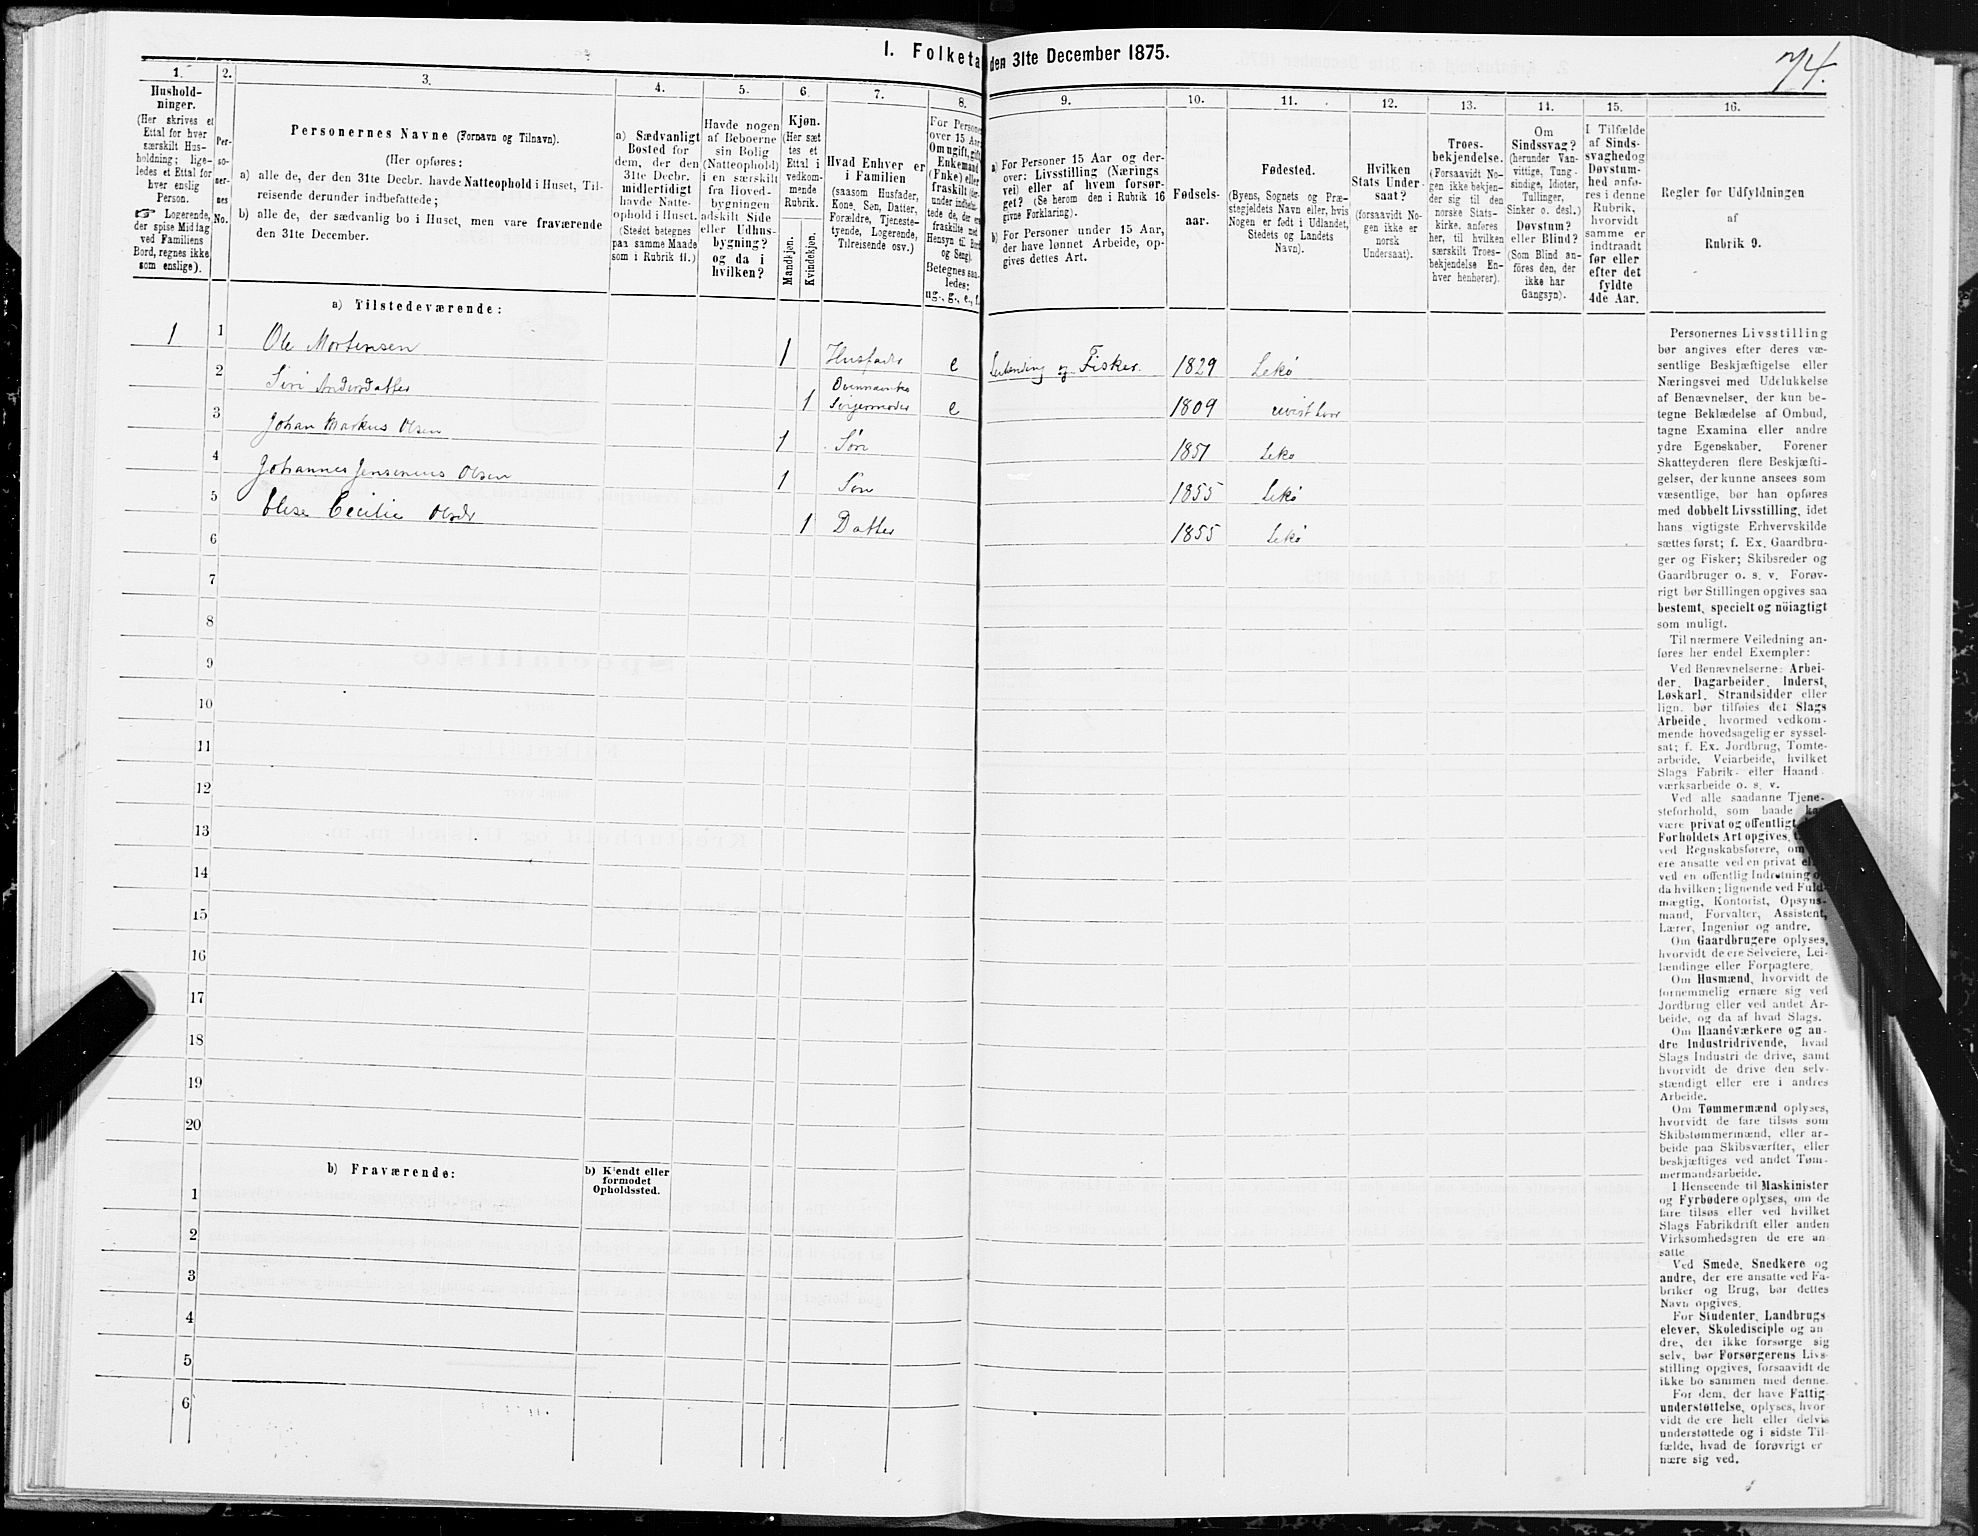 I. Folketa den 31te December 1875.
74.
1.
Hushold-
ninger.
(Her skrives et
Ettal for hver
særskilt Hus-
holdning; lige-
ledes et Ettal for
hver enslig
Person.
☞ Logerende,
der spise Middag
ved Familiens
Bord, regnes ikke
som enslige).
2.
Per-
so-
ner-
nes
No.
3.
Personernes Navne (Fornavn og Tilnavn).
(Her opføres:
a) alle de, der den 31te Decbr. havde Natteophold i Huset, Til-
reisende derunder indbefattede;
b) alle de, der sædvanlig bo i Huset, men vare fraværende
den 31te December.
4.
a) Sædvanligt
Bosted for
dem, der den
31te Decbr.
midlertidigt
havde Natte-
ophold i Huset.
(Stedet betegnes
paa samme Maade
som i Rubrik 11.)
5.
Havde nogen
af Beboerne
sin Bolig
(Natteophold)
i en særskilt
fra Hoved-
bygningen
adskilt Side
eller Udhus-
bygning?
og da i
hvilken?
6.
Kjøn.
(Her sæt
tes et
Ettal i
vedkom-
mende
Rubrik.
Mandkjøn.
Kvindekjøn.
7.
Hvad Enhver er
i Familien
(saasom Husfader,
Kone, Søn, Datter,
Forældre, Tjeneste-
tyende, Logerende,
Tilreisende osv.)
8.
For Persone
over 15 Aar
Om ugift, gift
Enkemand
(Enke) eller
fraskilt
under indbefat-
tede de, der ere
fraskilte med
Hensyn til Bord
og Seng).
Betegnes saa-
ledes:
ug., g., e., f.
9.
a) For Personer 15 Aar og der-
over: Livsstilling (Nærings
vei) eller af hvem forsør-
get? (Se herom den i Rubrik 16
givne Forklaring).
b) For Personer under 15 Aar,
der have lønnet Arbeide, op-
gives dettes Art.
10.
Fødsels-
aar.
11.
Fødested.
(Byens, Sognets og Præ-
stegjeldets Navn eller, hvis
Nogen er født i Udlandet,
Stedets og Landets
Navn).
12.
Hvilken
Stats Under-
saat?
(forsaavidt No-
gen ikke er
norsk
Undersaat).
13.
Troes-
bekjendelse.
(Forsaavidt No-
gen ikke bekjen-
der sig til den
norske Stats-
kirke, anføres
her, til hvilken
særskilt Troes-
bekjendelse En-
hver henhører).
14.
Om
Sindssvag?
(herunder Van-
vittige, Tung-
sindige, Idioter,
Tullinger,
Sinker o. desl.)
Døvstum?
eller Blind?
(Som Blind an-
føres den, der
ikke har
Gangsyn).
15.
I Tilfælde
af Sinds-
svaghed og
Døvstum-
hed anfø-
res i denne
Rubrik,
hvorvidt
samme er
indtraadt
før eller
efter det
fyldte
4de Aar.
16.
Regler for Udfyldningen
af
Rubrik 9.
a) Tilstedeværende:
1 1 Ole Mortensen 1 Husfader e Leilending og Fisker. 1829 Lekø
2 Siri Andersdatter 1 Svigermoder e 1809
3 Johan Markus Olsen 1 Søn 1851 Lekø
4 Johannes Jensenius Olsen 1 Søn 1855 Lekø
5 Elise Cecilie Olsdtr 1 Datter 1855 Lekø
6
7
8
9
10
11
12
13
14
15
16
17
18
19
20
b) Fraværende:
b) Kjendt eller
formodet
Opholdssted.
1
2
3
4
5
6
Personernes Livsstilling
bør angives efter deres væ-
sentlige Beskjæftigelse eller
Næringsvei med Udelukkelse
af Benævnelser, der kun be-
tegne Beklædelse af Ombud,
tagne Examina eller andre
ydre Egenskaber. Forener
Skatteyderen flere Beskjæfti-
gelser, der kunne ansees som
væsentlige, bør han opføres
med dobbelt Livsstilling, idet
hans vigtigste Erhvervskilde
sættes først; f. Ex. Gaardbru-
ger og Fisker; Skibsreder og
Gaardbruger o. s. v. Forøv-
rigt bør Stillingen opgives saa
bestemt, specielt og nöiagtigt
som muligt.
Til nærmere Veiledning an-
føres her endel Exempler:
Ved Benævnelserne: Arbei-
der, Dagarbeider, Inderst,
Løskarl, Strandsidder eller
lign. bør tilføies det Slags
Arbeide, hvormed vedkom-
mende hovedsagelig er syssel-
sat; f. Ex. Jordbrug, Tomte-
arbeide, Veiarbeide, hvilket
Slags Fabrik- eller Haand-
værksarbeide o. s. v.
Ved alle saadanne Tjene-
steforhold, som baade ka
være privat og offentligt,
Forholdets Art opgives,
ved Regnskabsførere, om
ere ansatte ved en privat el
ved en offentlig Indretning o
da hvilken; lignende ved Fuld-
mægtig, Kontorist, Opsyns-
mand, Forvalter, Assistent,
Lærer, Ingeniør og andre.
Om Gaardbrugere oplyses,
hvorvidt de ere Selveiere, Lei-
lændinge eller Forpagtere.
Om Husmænd, hvorvidt de
fornemmelig ernære sig ved
Jordbrug eller ved andet Ar-
beide, og da af hvad Slags.
Om Haandværkere og an-
dre Industridrivende, hvad
Slags Industri de drive, samt
hvorvidt de drive den selv-
stændigt eller ere i andres
Arbeide.
Om Tømmermænd oplyses,
hvorvidt de fare tilsøs som
Skibstømmermænd, eller ar-
beide paa Skibsværfter, eller
beskjæftiges ved andet Tøm-
mermandsarbeide.
I Henseende til Maskinister
og Fyrbødere oplyses, om de
fare tilsøs eller ved hvilket
Slags Fabrikdrift eller anden
Virksomhedsgren de ere an-
satte
Ved Smede, Snedkere og
andre, der ere ansatte ved Fa-
briker og Brug, bør dettes
Navn opgives.
For Studenter, Landbrugs-
elever, Skoledisciple og an-
dre, der ikke forsørge sig
selv, bør Forsørgerens Livs-
stilling opgives, forsaavidt de
ikke bo sammen med denne.
For dem, der have Fattig-
understøttelse, oplyses, hvor
vidt de ere helt eller delvis
understøttede og i sidste Til-
fælde, hvad de forøvrigt er
nære sig ved.